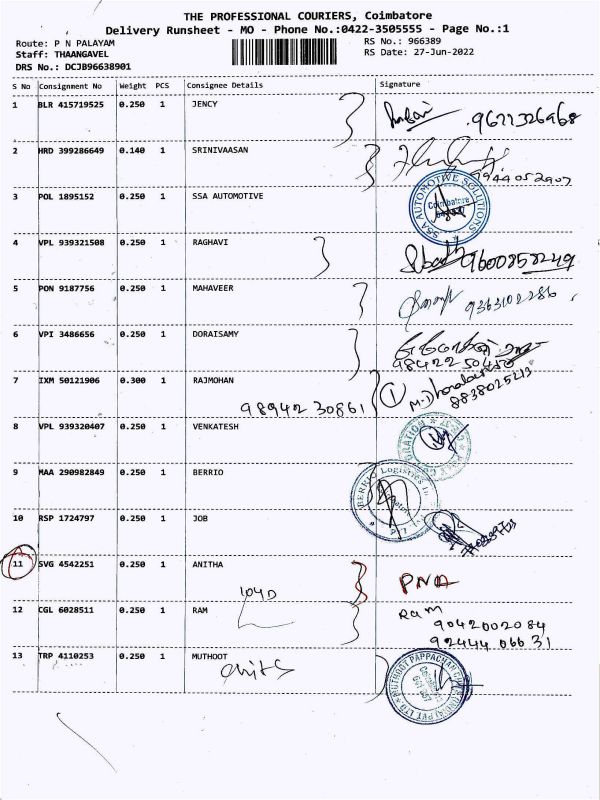 THE PROFESSIONAL COURIERS, Coimbatore
Delivery Runsheet - MO - Phone No.:0422-3505555 - Page No.:1
Route: P N PALAYAM
RS No.: 966389
Staff: THAANGAVEL
RS Date: 27-Jun-2022
DRS No.: DCJB96638901
S No Consignment No Weight PCS Consignee Details Signature
1 BLR 415719525 0.250 1 JENCY 9677326968
2 HRD 399286649 0.140 1 SRINIVAASAN 9944052907
3 POL 1895152 0.250 1 SSA AUTOMOTIVE
SSA AUTOMOTIVE SOLUTIONS
Coimbatore
4 VPL 939321508 0.250 1 RAGHAVI 9600858249
5 PON 9187756 0.250 1 MAHAVEER 9363102286
6 VPI 3486656 0.250 1 DORAISAMY
98422 50450
7 IXM 50121906 0.300 1 RAJMOHAN
98942 30861
8838025213
8 VPL 939320407 0.250 1 VENKATESH
9 MAA 290982849 0.250 1 BERRIO
BERRIO Logistics
10 RSP 1724797 0.250 1 JOB
11 SVG 4542251 0.250 1 ANITHA PNA
12 CGL 6028511 0.250 1 RAM Ram
9042002084
92444 06631
13 TRP 4110253 0.250 1 MUTHOOT
MUTHOOT PAPPACHAN